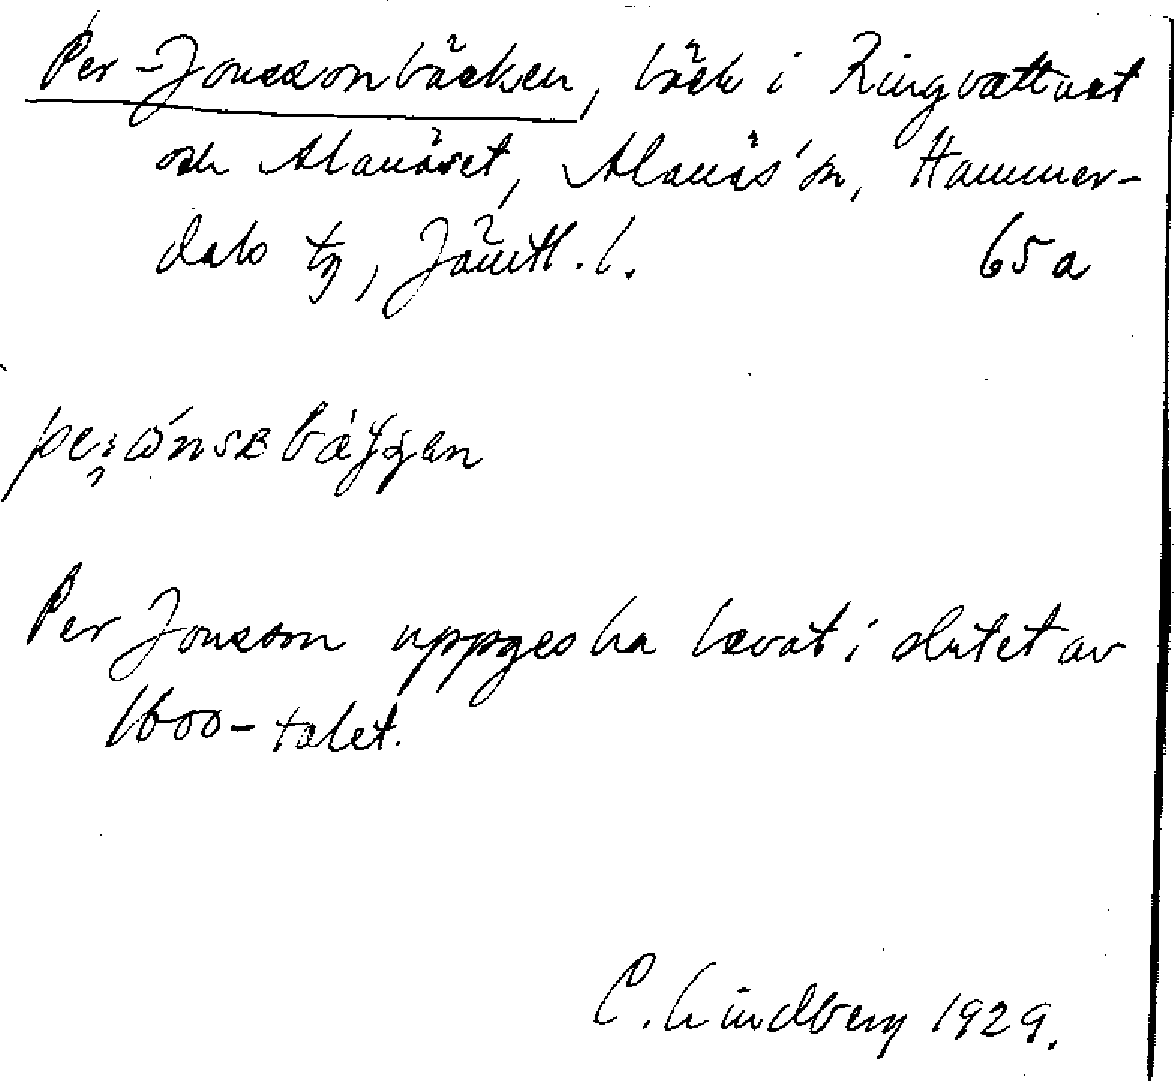 Per-Jonssonbäcken, bäck i Ringvattnet
och Alanäset, Alanäs sn, Hammer-
dals tg, Jämtl. l. 65a
Per Jonsson uppges ha levat i slutet av
1600-talet.
C. Lindberg 1929.